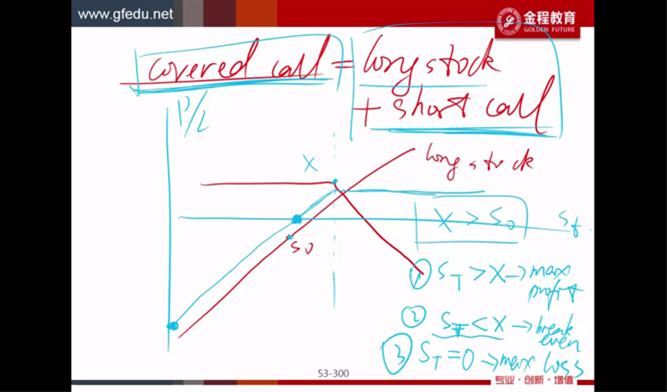 www.gfedu.net
金程教育
GOLDEN FUTURE
covered call = long stock
+ short call
P/L
X
long stock
X > S0
St
S0
① ST > X → max
profit
② ST < X → break
even
③ ST = 0 → max loss
53-300
专业·创新·增值